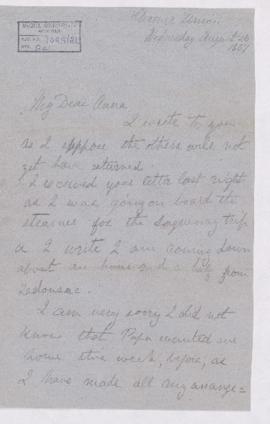 Steamer Union
Wednesday August 26
1857
McGILL UNIVERSITY
ARCHIVES
ACC. NO.
REF.
My Dear Anna
I write to you
as I suppose the others will not
yet have returned.
I received your letter last night
as I was going on board the
steamer for the Saguenay trip
& I write I am coming down
about an hour and a half from
Tadousac.
I am very sorry I did not
know that Papa wanted me
home this week, before, as
I have made all my arrange=